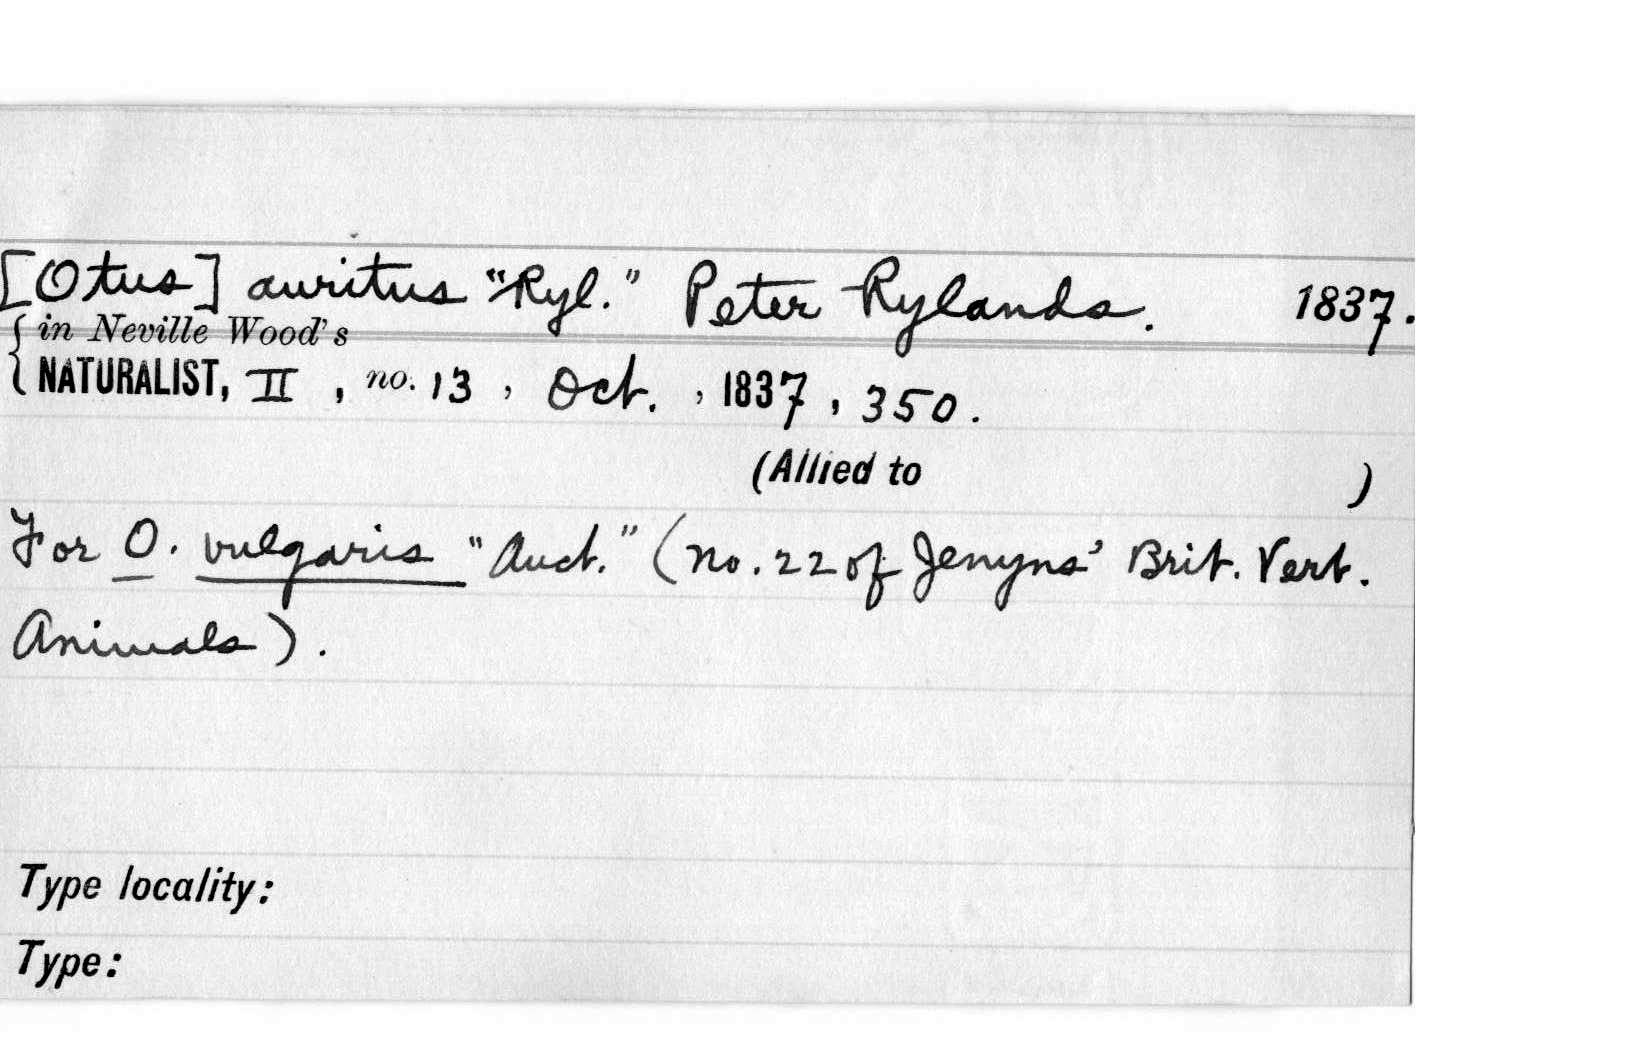 [Otus] auritus "Ryl." Peter Rylands. 1837.
{ in Neville Wood's
NATURALIST, II, no. 13, Oct., 1837, 350.
(Allied to )
For O. vulgaris "Auct." (no. 22 of Jenyns' Brit. Vert.
Animals).
Type locality:
Type: